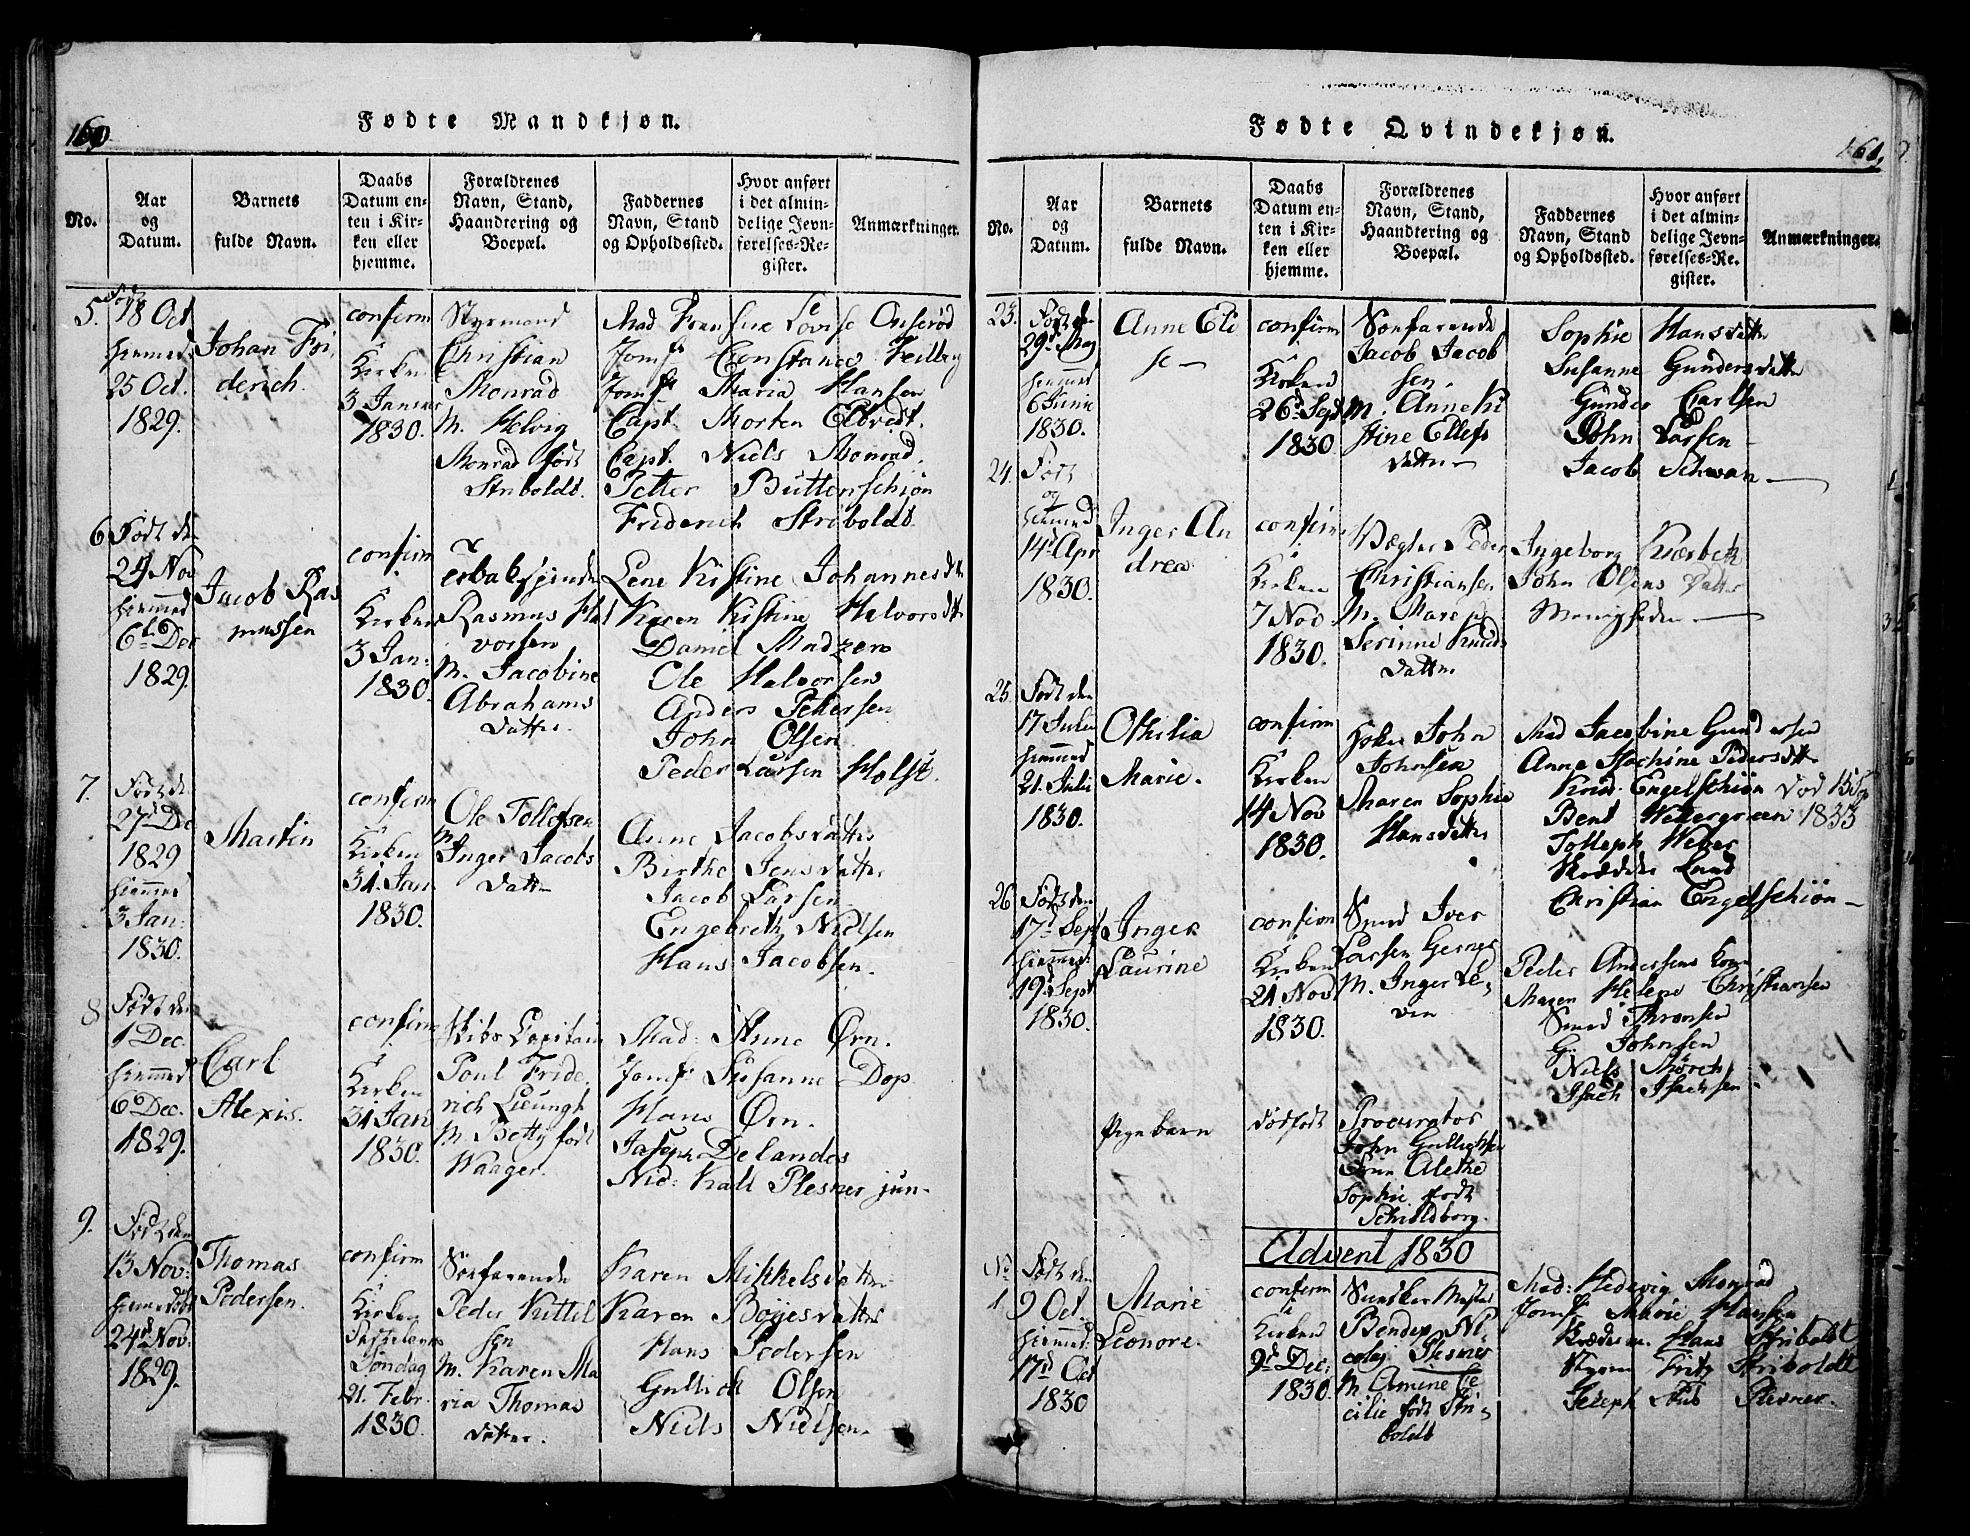 160
Fødte Mandkjøn.
No.
Aar
og
Datum.
Barnets
fulde Navn.
Daabs
Datum en-
ten i Kir-
ken eller
hjemme.
Forældrenes
Navn, Stand,
Haandtering og
Boepæl.
Faddernes
Navn, Stand
og Opholdssted.
Hvor anført
i det almin-
delige Jevn-
førelses-Re-
gister.
Anmærkninger.
5.
18 Oct
hiemmed
25 Oct.
1829.
Johan Fri
derich.
confirm
Kirken
3 Januar
1830.
Styrmand
Christian
Monrad
M. Helvig
Monrad født
Striboldt.
Mad Fransine Lovise Onserød
Jomf Constance
Jomf Maria Hansen
Capt. Morten Elvedt.
Capt. Niels Monrad.
Petter Buttenschiøn
Friderich Striboldt
6
Født den
24 Nov
hiemmed
6te Dec
1829.
Jacob Ras
mussen
confirm
Kirken
3 Jan:
1830
Rasmus Hal
vorsen
M. Jacobine
Abrahams
datter.
Lene Kistine Johannesdtr
Karen Kistine Halvorsdtr
Daniel Madzen
Ole Halvorsen
Anders Pettersen
John Olsen
Peder Larsen Holst.
7.
Født d.
27d Dec
1829
hiemmed
3 Jan:
1830.
Martin
confirm
Kirken
31. Jan
1830.
Ole Tollefsen
M.
Inger Jacobs
datter
Anne Jacobsdatter
Birthe Jensdatter
Jacob Larsen
Engebreth Nielsen
Hans Jacobsen.
8
Født den
1 Dec.
hiemmed
6 Dec.
1829.
Carl
Alexis.
confirm
Kirken
31 Jan
1830.
Skibs Capitain
Poul Fride
rich Lieungh
M. Betty født
Waager.
Mad: Stine Ørn.
Jomf Susanne Dop
Hans Ørn.
Joseph Delandes
Nic: Kall Plesner jun.
9.
Født den
13 Nov:
hiemedøbt
24d Nov.
1829.
Thomas
Pedersen.
confirm
Kirken
Søndag
21. Febr.
1830.
Søefarende
Peder Kittil
sen
M. Karen Ma
ria Thomas
datter.
Karen Mikkelsdatter
Karen Bøyesdatter
Hans Pedersen
Gullich Olsen
Niels Nielsen.
Fødte Qvindekjøn.
161.
No.
Aar
og
Datum.
Barnets
fulde Navn.
Daabs
Datum en-
ten i Kir-
ken eller
hjemme.
Forældrenes
Navn, Stand,
Haandtering og
Boepæl.
Faddernes
Navn, Stand
og Opholdssted.
Hvor anført
i det almin-
delige Jevn-
førelses-Re-
gister.
Anmærkninger.
23.
Født den
29d May
hiemmed
6 Junii
1830.
Anne Eli
se
confirm
Kirken
26 Sept
1830
Søefarende
Jacob Jacob
sen.
M. Anne Ki
stine Ellefs
datter
Sophie Hansdatter
Susanne Gundersdatter
Gunder Carlsen
John Larsen
Jacob Schwan
24.
Født
og
hiemmed
14d Apr
1830.
Inger An
drea
confirm
Kirken
7 Nov
1830.
Vægter Peder
Christiansen
M. Maren
Serinne Knuds
datter
Ingeborg
John Olsens Datter
Menigheden
25.
Født den
17 Julii
hiemmed
21. Julii
1830.
Othilia
Marie.
confirm
Kirken
14 Nov
1830.
John
Johnsen
Maren Sophie
Hansdatter
Mad Jacobine Gundersen
Anne Jochine Pedersdtr
Engelschiøn
Bent Wettergreen
Tolleph Weber
Skredder Lund
Christian Engelschiøn
Død
1833
26
Født den
17d Sept
hiemmed:
19d Sept
1830.
Inger
Laurine
confirm
Kirken
21 Nov
1830.
Smed Iver
Larsen
M. Inger Le
vin
Peder Andersens kone
Maren Helene Christiansen
Smed Thronsen
G. Johnsen
Niels Mørch
Isach Isachsen
Pigebarn
dødfødt
Procurator
John
Alethe
Sophie født
Schieldborg.
Advent 1830
No
1
Født den
9 Oct.
hiemmed:
17d Oct
1830
Marie
Leonore.
confirm
Kirken
9d Dec:
1830
Bendix Ni
colaj Plesner
M. Amine Ce
cilie født Stri
boldt
Mad: Hedevig Monrad
Jomf Marie Hansen
Hans Striboldt
Styrm Fritz Striboldt
Joseph Plesner.